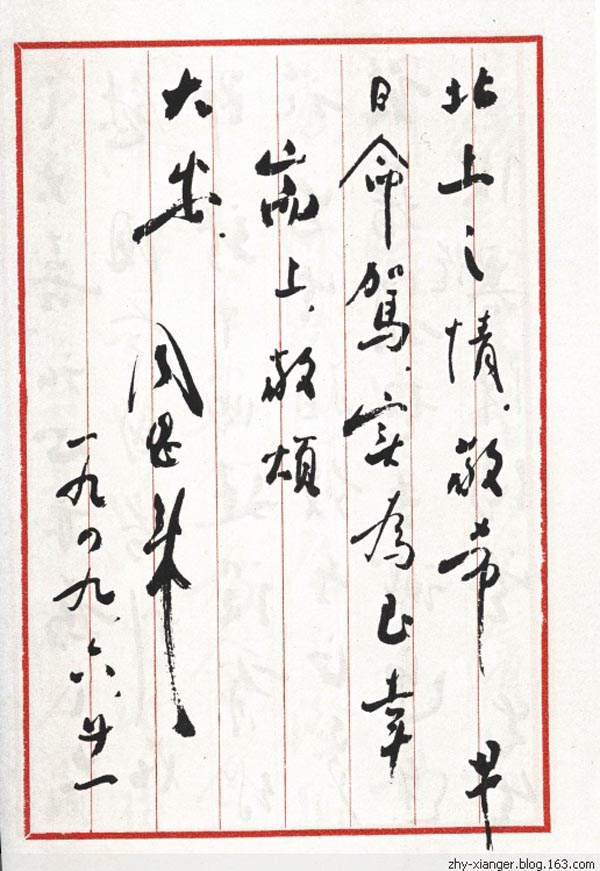 北上之情.敬希 早
日命駕.实為至幸
耑上.敬頌
大安.
周恩来
一九四九、六、廿一
zhy-xianger.blog.163.com